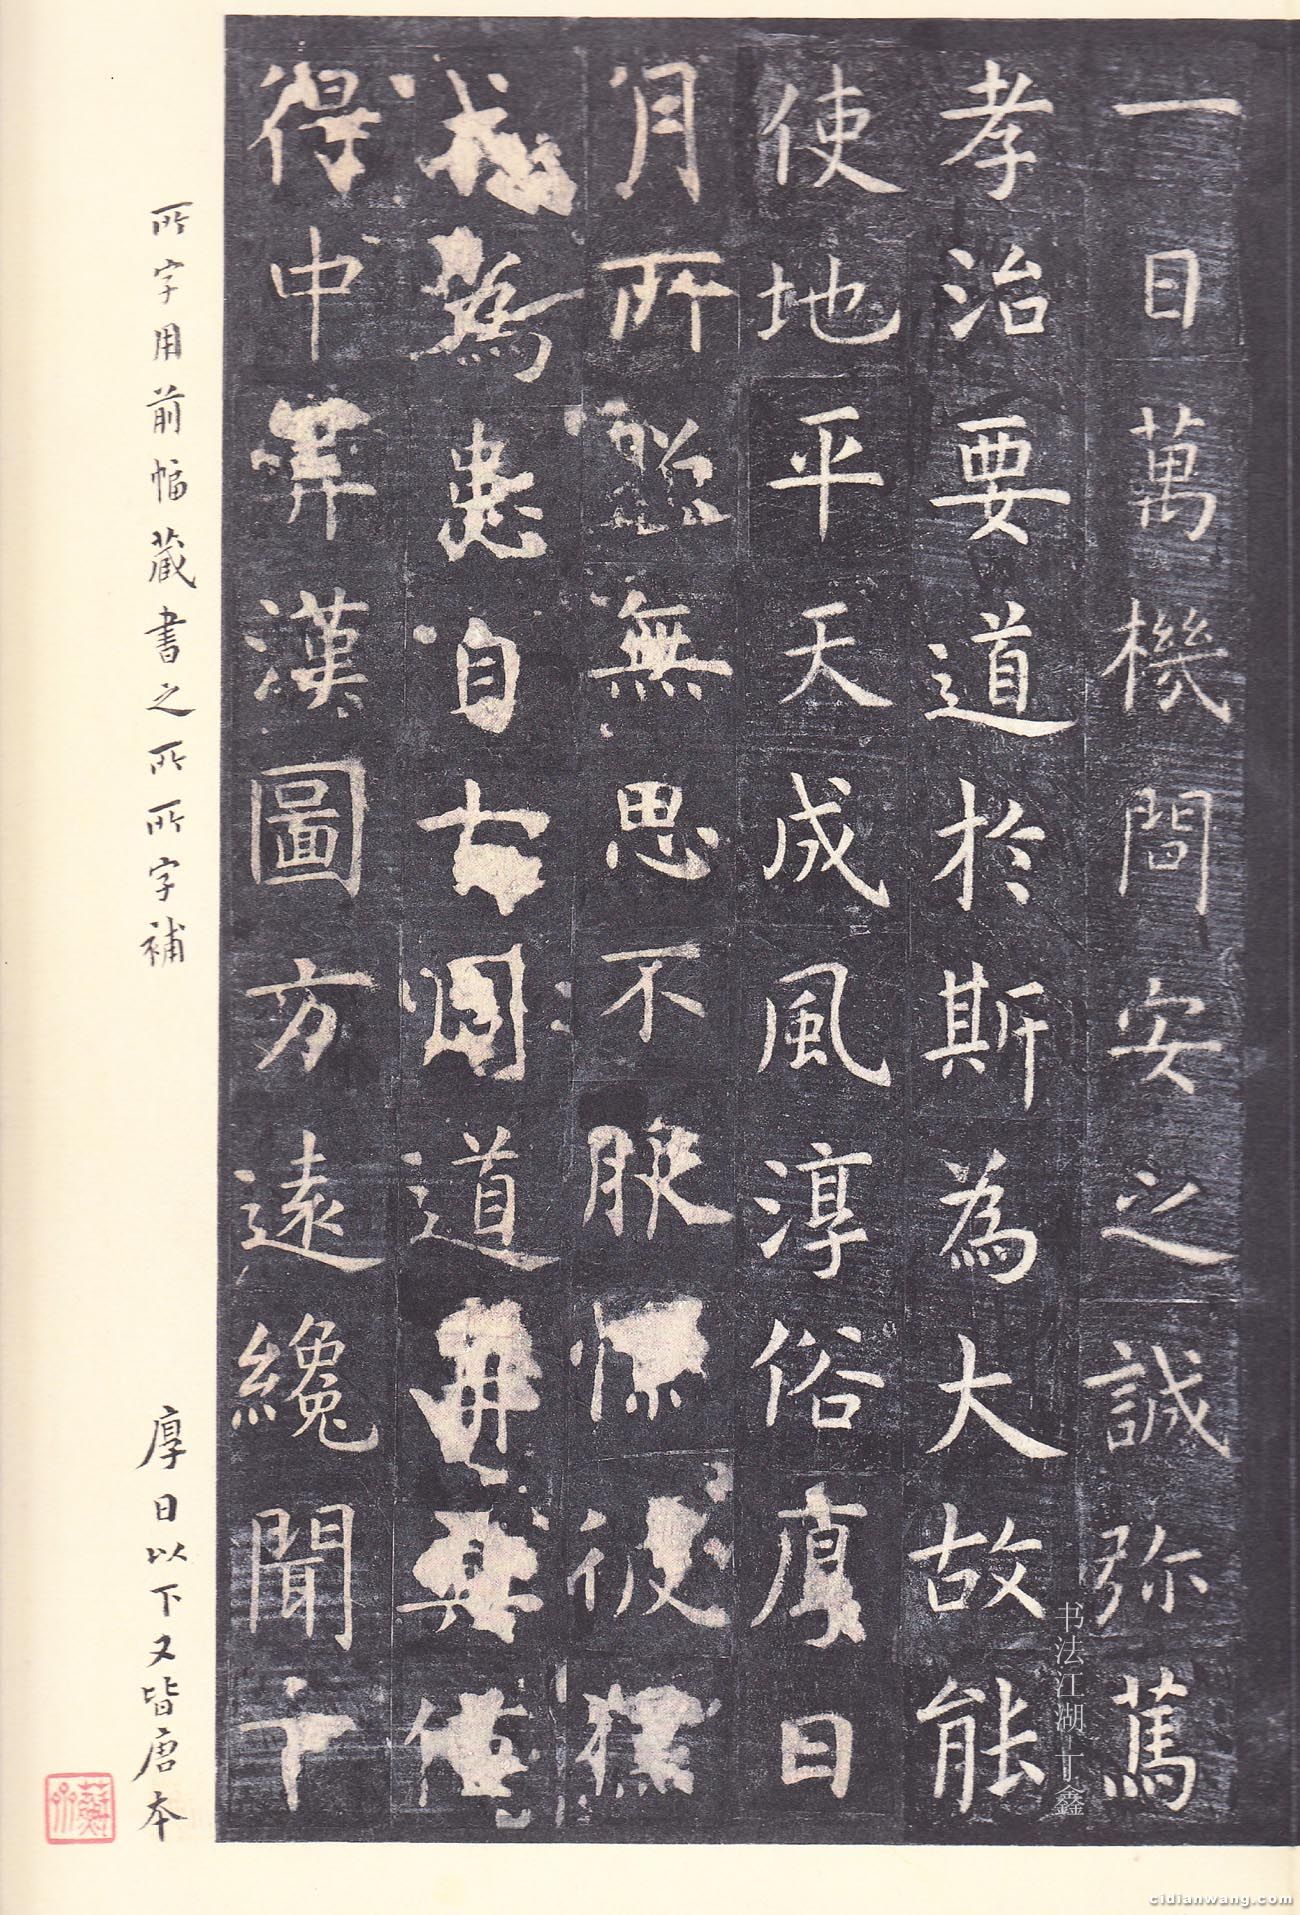 一日萬機問安之誠弥篤
孝治要道於斯為大故能
使地平天成風淳俗厚日
月所照無思不服憬彼獯
戎為患自古周道再興僅
得中筭漢圖方遠纔聞下
所字用前幅藏書之所所字補
厚日以下又皆唐本
书法江湖 丁鑫
cidianwang.com